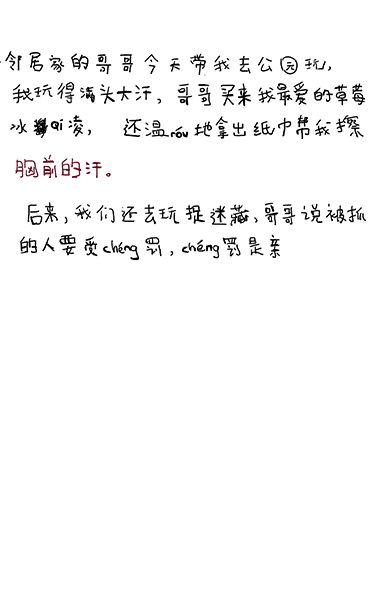 邻居家的哥哥今天带我去公园玩,
我玩得满头大汗,哥哥买来我最爱的草莓
冰qi凌,还温róu地拿出纸巾帮我擦
胸前的汗。
后来,我们还去玩捉迷藏,哥哥说被抓
的人要受chéng罚,chéng罚是亲